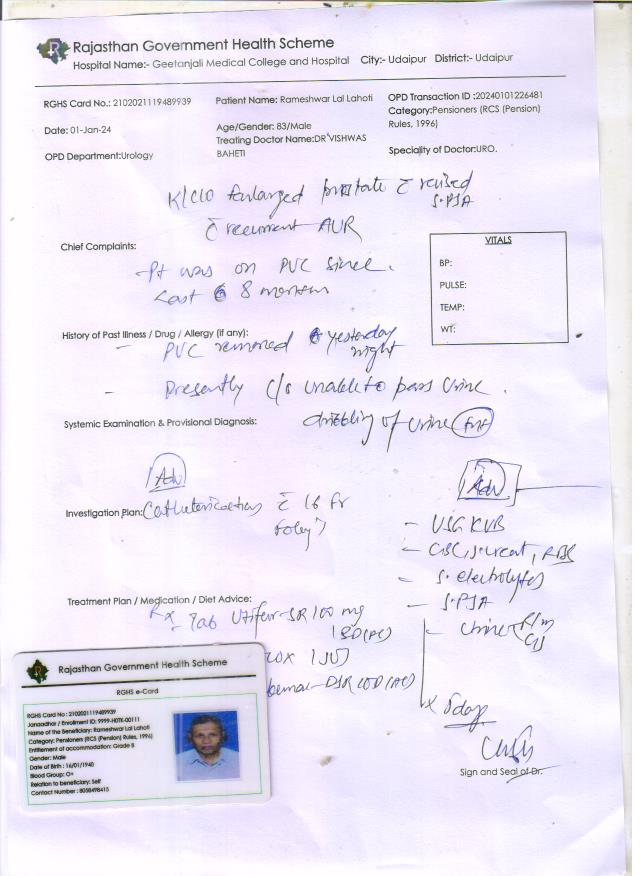 Rajasthan Government Health Scheme
Hospital Name:- Geetanjali Medical College and Hospital City:- Udaipur District:- Udaipur
RGHS Card No.: 2102021119489939
Patient Name: Rameshwar Lal Lahoti
OPD Transaction ID :20240101226481
Category:Pensioners (RCS (Pension) Rules, 1996)
Date: 01-Jan-24
Age/Gender: 83/Male
Treating Doctor Name:DR VISHWAS BAHETI
OPD Department:Urology
Speciality of Doctor:URO.
K/C/O Enlarged prostate c̄ raised S.PSA
c̄ recurrent AUR
Chief Complaints:
- Pt was on PUC since
last 8 months
VITALS
BP:
PULSE:
TEMP:
WT:
History of Past Illness / Drug / Allergy (if any):
- PUC removed yesterday night
- Presently c/o unable to pass urine.
Systemic Examination & Provisional Diagnosis:
dribbling of urine
Adv
Investigation Plan:
Catheterization c̄ 16 Fr
Foley's
Adv
- USG KUB
- CBC, S.creat, RBS
- S. electrolytes
- S.PSA
- Urine R/m
C/S
Treatment Plan / Medication / Diet Advice:
Rx
- Tab SR 100 mg
1 BD (PC)
DSR 1 OD (AC)
x 5 days
Sign and Seal of Dr.
Rajasthan Government Health Scheme
RGHS e-Card
RGHS Card No : 2102021119489939
Janaadhar / Enrollment ID: 9999-H0TK-00111
Name of the Beneficiary: Rameshwar Lal Lahoti
Category: Pensioners (RCS (Pension) Rules, 1996)
Entitlement of accommodation: Grade B
Gender: Male
Date of Birth : 16/01/1940
Blood Group: O+
Relation to beneficiary: Self
Contact Number : 8058498415